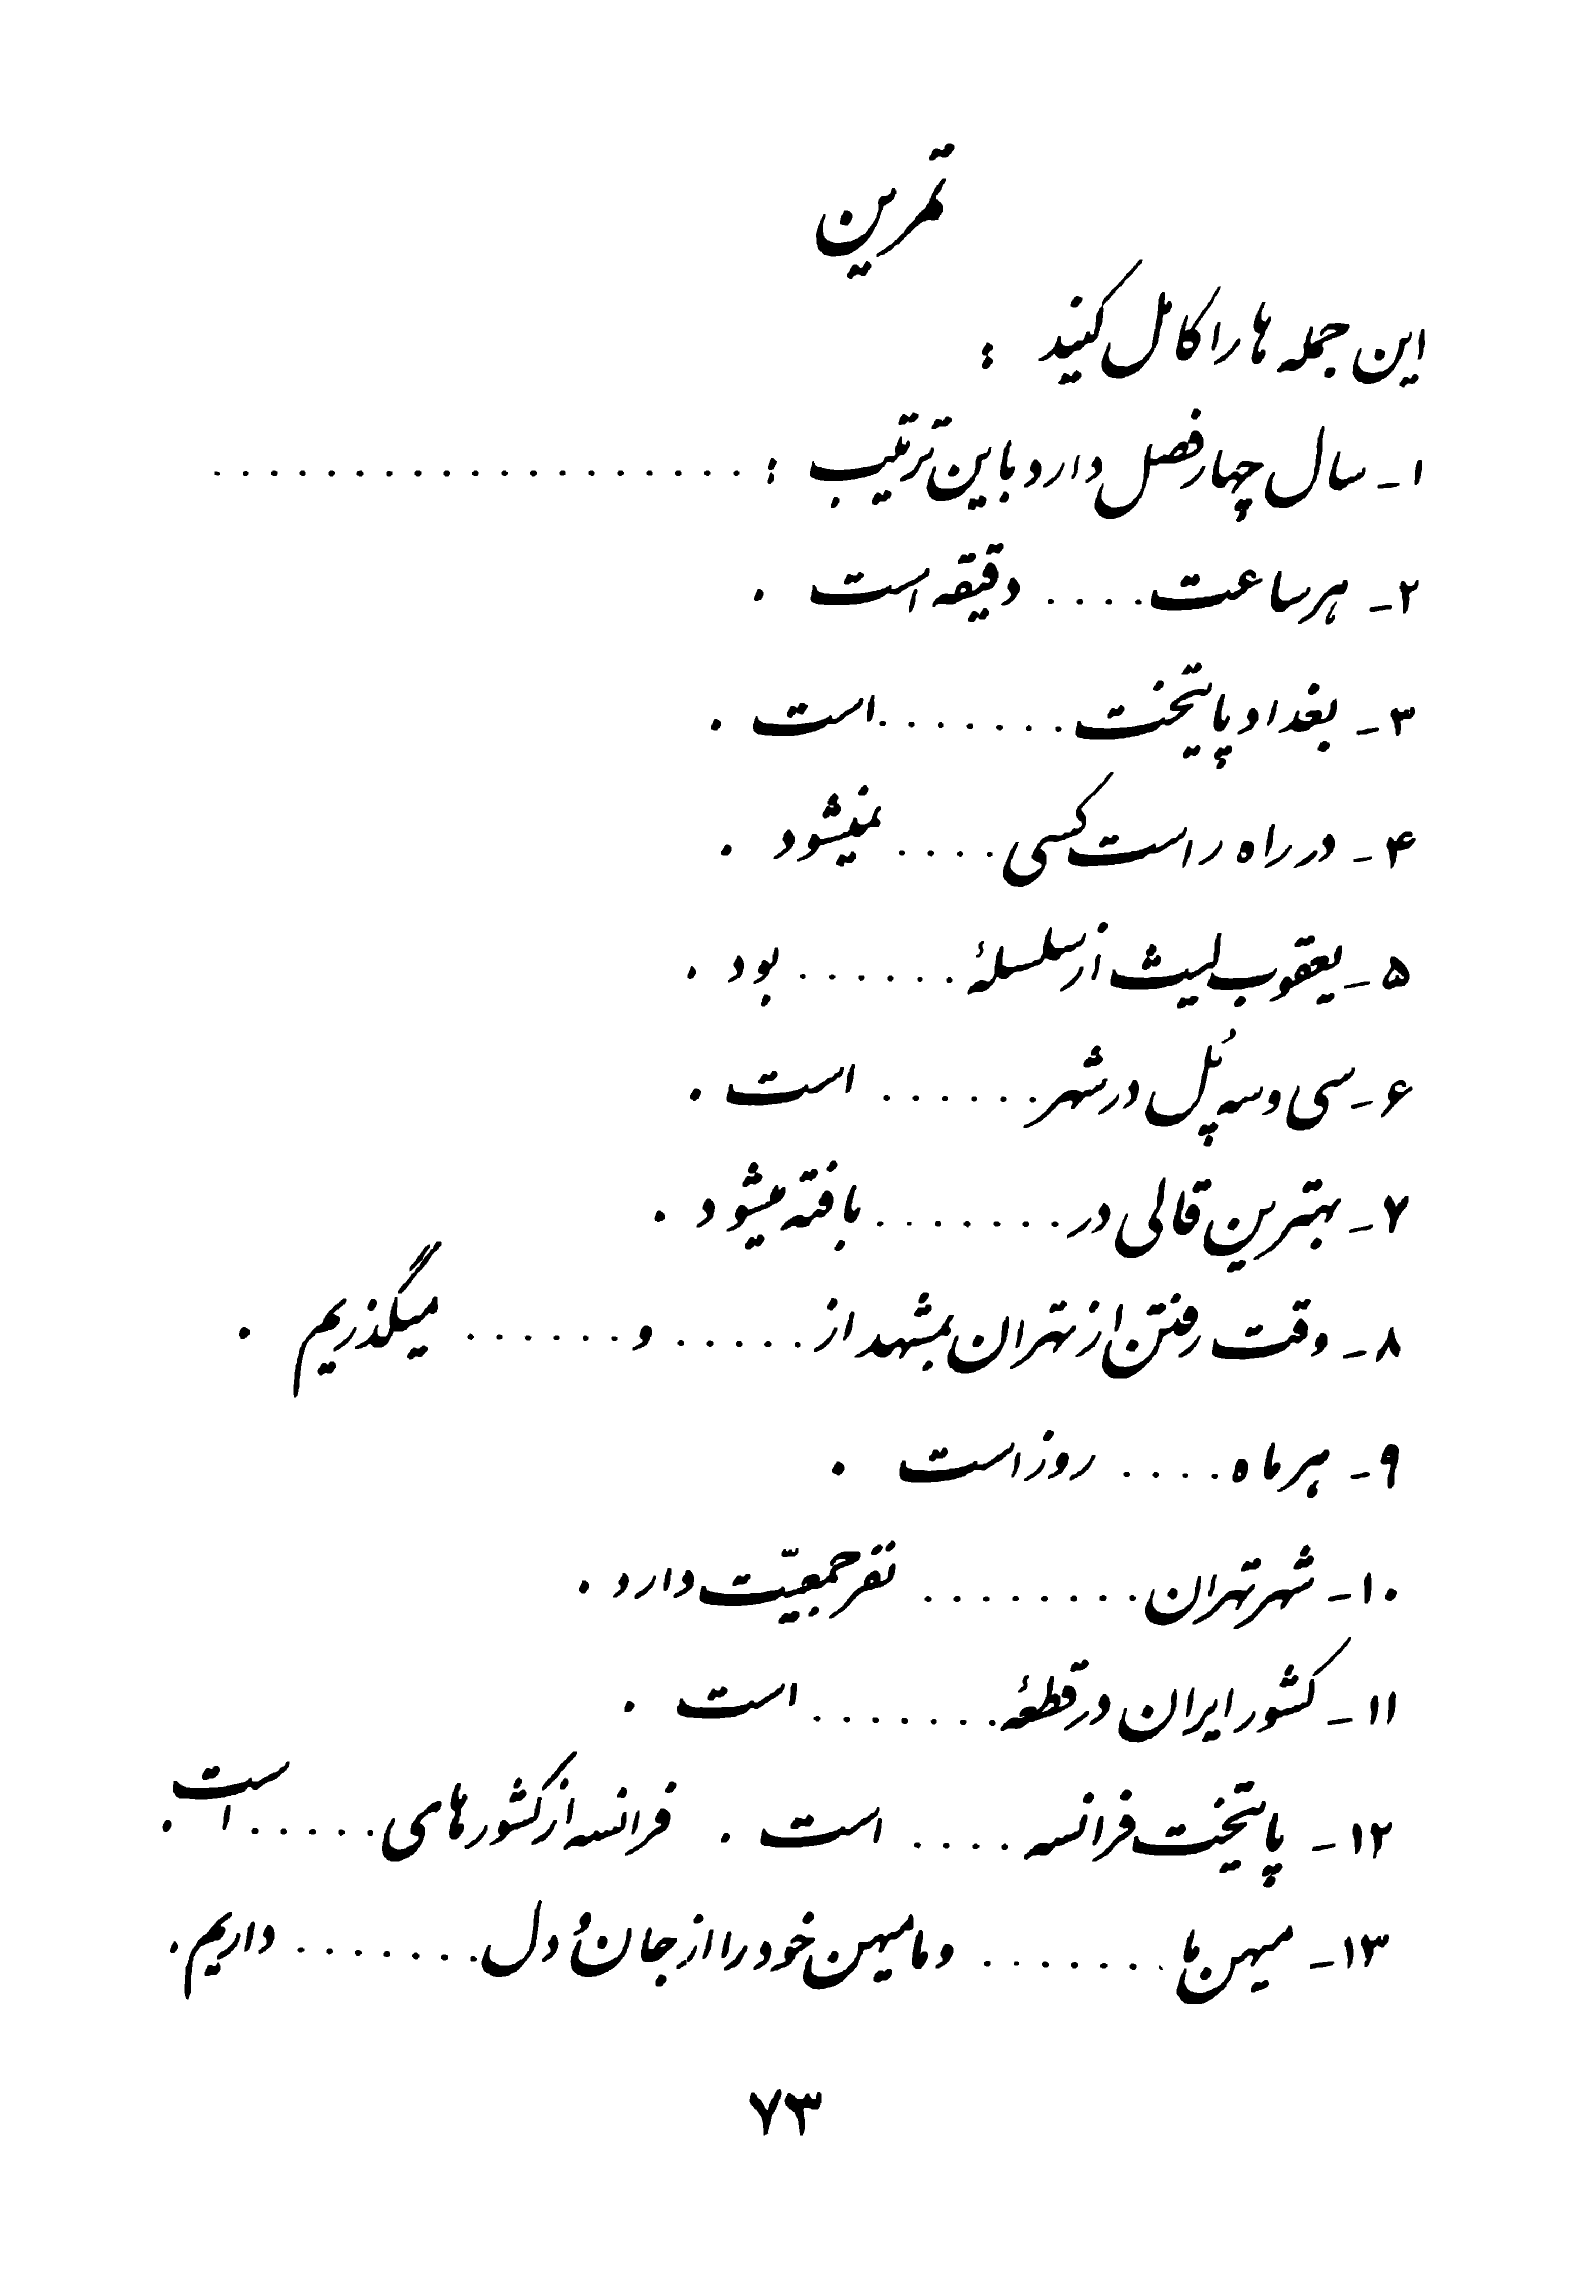 تمرین
این جمله ها را کامل کنید :
۱ـ سال چهار فصل دارد باین ترتیب : . . . . . . . . . . . . . . . . . . .
۲ـ هر ساعت . . . . دقیقه است .
۳ـ بغداد پایتخت . . . . . . . است .
۴ـ در راه راست کسی . . . . نمیشود .
۵ـ یعقوب لیث از سلسلهٔ . . . . . . بود .
۶ـ سی و سه پُل در شهر . . . . . . است .
۷ـ بهترین قالی در . . . . . . . بافته میشود .
۸ـ وقت رفتن از تهران بمشهد از . . . . . و . . . . . . میگذریم .
۹ـ هر ماه . . . . روز است .
۱۰ـ شهر تهران . . . . . . . . نفر جمعیّت دارد .
۱۱ـ کشور ایران در قطعهٔ . . . . . . . است .
۱۲ـ پایتخت فرانسه . . . . است . فرانسه از کشورهای . . . . . است .
۱۳ـ میهن ما . . . . . . . و ما میهن خود را از جان وُ دل . . . . . . . داریم .
۷۳